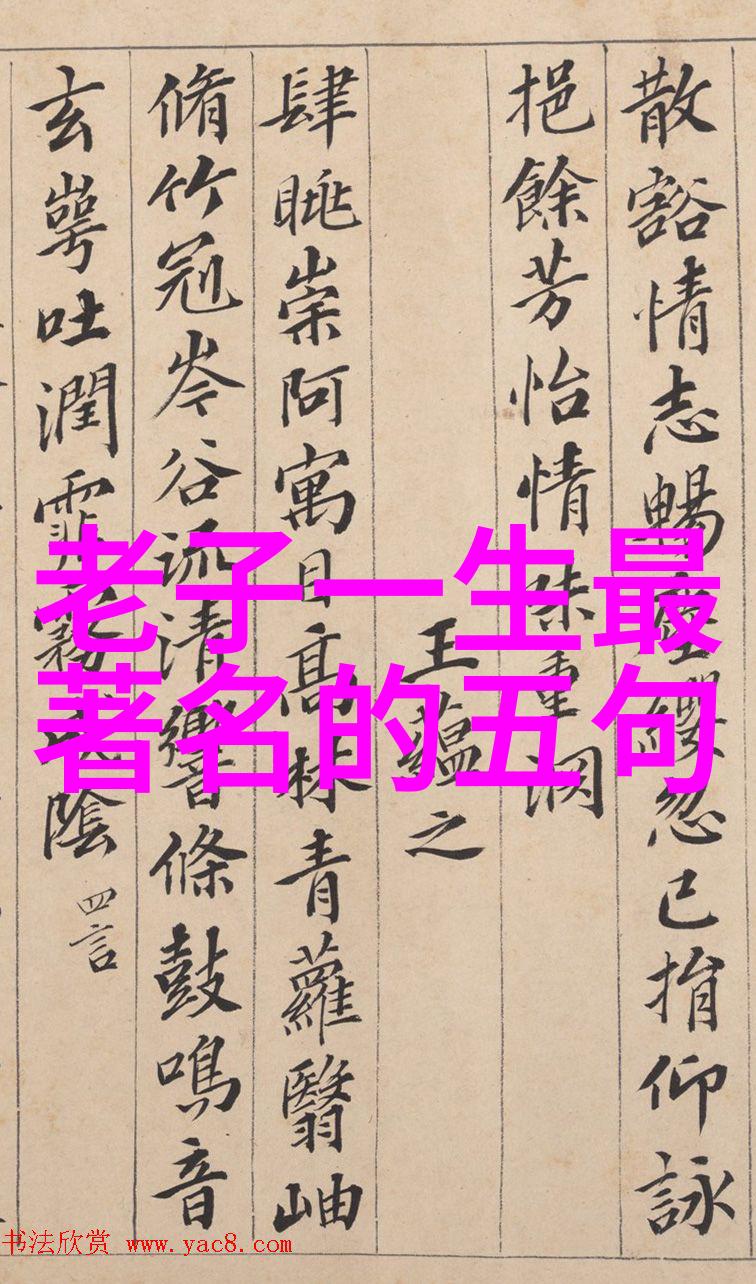 散豁情志暢塵纓忽已捐仰詠
挹餘芳怡情味重渕
王蘊之
肆眺崇阿寓目高林青蘿翳岫
脩竹冠岑谷流清響條鼓鳴音
玄崿吐潤霏霧成陰 四言
老子一生最
著名的五句
书法欣赏 www.yac8.com